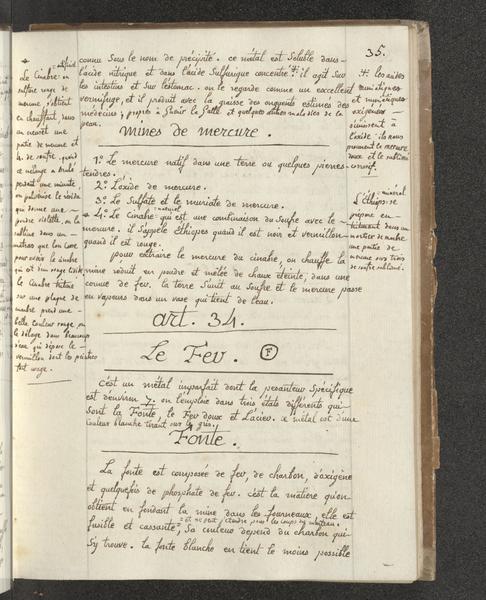 35.
connu sous le nom de précipité. ce métal est soluble dans
l'acide nitrique et dans l'acide sulfurique concentré. # il agit sur
les intestins et sur l'estomac. on le regarde comme un excellent
vermifuge, et il produit avec la graisse des onguents estimés des
médecins, propres à guérir la galle et quelques autres maladies de la
peau.
mines de mercure.
1.° Le mercure natif dans une terre ou quelques pierres
tendres.
2.° L'oxide de mercure.
3.° Le sulfate et le muriate de mercure.
* 4.° Le Cinabre naturel qui est une combinaison du soufre avec le
mercure. il s'appele Ethiopes quand il est noir et vermillon
quand il est rouge.
pour extraire le mercure du cinabre, on chauffe la
mine réduit en poudre et mêlée de chaux éteinte, dans une
cornue de fer. la terre s'unit au soufre et le mercure passe
en vapeurs dans un vase qui tient de l'eau.
art. 34.
Le Fer. F
c'est un métal imparfait dont la pesanteur spécifique
est d'environ 7. on l'emploie dans trois états différents qui
sont la Fonte, le Fer doux et L'acier. ce métal est d'une
couleur blanche tirant sur le gris.
Fonte.
La fonte est composée de fer, de charbon, d'oxigène
et quelquefois de phosphate de fer. c'est la matière qu'on
obtient en fondant la mine dans les fourneaux, elle est
fusible et cassante, et ne peut s'étendre sous les coups du marteau
sa couleur depend du charbon qui
s'y trouve. la fonte blanche en tient le moins possible
*
Le Cinabre artificiel ou
sulfure rouge de
mercure s'obtient
en chauffant dans
un creuset une
partie de mercure et
4 de soufre, après
ce mélange a brulé
pendant une minute,
on pulvérise le résidu
qui donne une
poudre violette, on la
sublime dans un
matras
pour avoir le cinabre
qui est d'un rouge
Le Cinabre
sur une plaque de
marbre prend une
belle couleur rouge, on
le délaye dans
qui dépose le
vermillon dont les peintres
font usage.
# les acides
muriatiques
et muriatiques
oxigénés
s'unissent à
l'oxide: ils nous
donnent le mercure
doux et le sublimé
corrosif.
L'Ethiops minéral
se prépare en
triturant dans un
mortier de marbre
une partie de
mercure sur trois
de soufre sublimé.